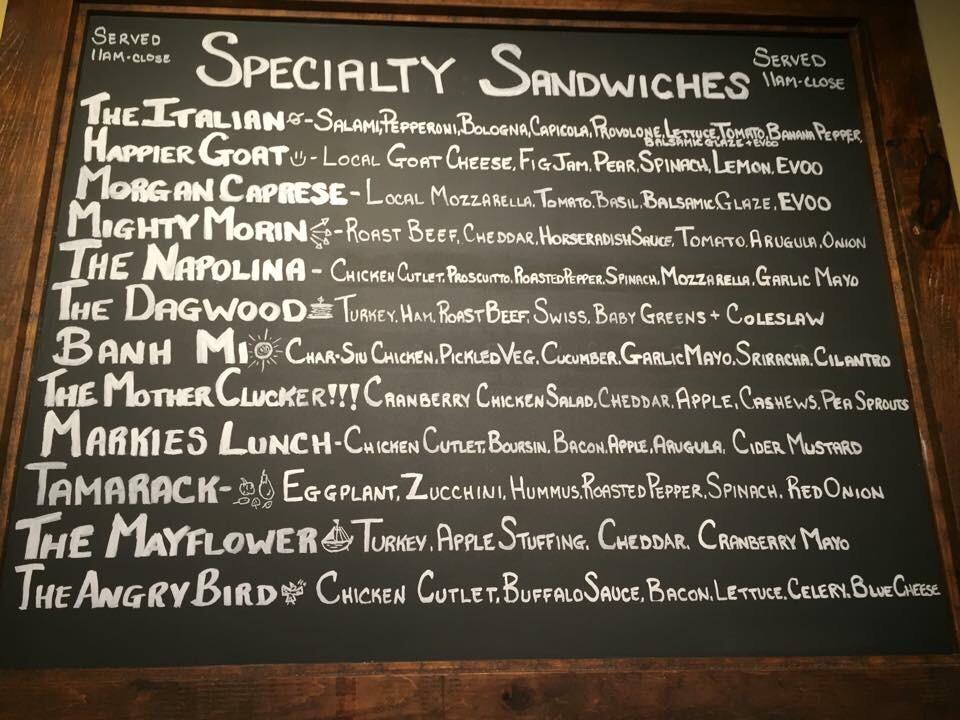 Served
11am-close
Specialty Sandwiches
Served
11am-close
The Italian - Salami, Pepperoni, Bologna, Capicola, Provolone, Lettuce, Tomato, Banana Pepper,
Balsamic Glaze + EVOO
Happier Goat - Local Goat Cheese, Fig Jam, Pear, Spinach, Lemon, EVOO
Morgan Caprese - Local Mozzarella, Tomato, Basil, Balsamic Glaze, EVOO
Mighty Morin - Roast Beef, Cheddar, Horseradish Sauce, Tomato, Arugula, Onion
The Napolina - Chicken Cutlet, Proscuitto, Roasted Pepper, Spinach, Mozzarella, Garlic Mayo
The Dagwood Turkey, Ham, Roast Beef, Swiss, Baby Greens + Coleslaw
Banh Mi Char-Siu Chicken, Pickled Veg, Cucumber, Garlic Mayo, Sriracha, Cilantro
The Mother Clucker!!! Cranberry Chicken Salad, Cheddar, Apple, Cashews, Pea Sprouts
Markies Lunch - Chicken Cutlet, Boursin, Bacon, Apple, Arugula, Cider Mustard
Tamarack - Eggplant, Zucchini, Hummus, Roasted Pepper, Spinach, Red Onion
The Mayflower Turkey, Apple Stuffing, Cheddar, Cranberry Mayo
The Angry Bird Chicken Cutlet, Buffalo Sauce, Bacon, Lettuce, Celery, Blue Cheese